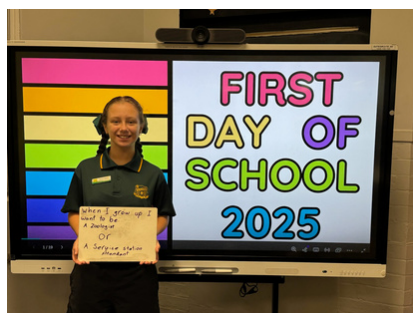 FIRST
DAY OF
SCHOOL
2025
When I grow up I
want to be
A Zoologist
or
A Service station
attendant